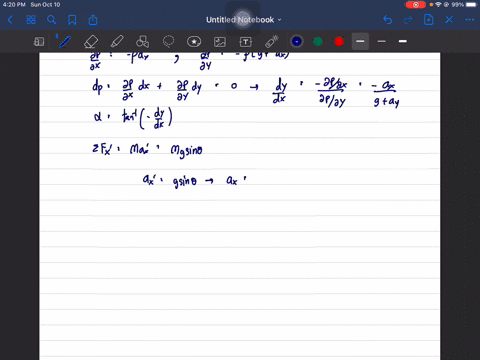 4:20 PM Sun Oct 10
99%
Untitled Notebook
∂P/∂x = -ρ ax ; ∂P/∂y = -ρ(g +
dp = ∂P/∂x dx + ∂P/∂y dy = 0 → dy/dx = -∂P/∂x / ∂P/∂y = -ax / g+ay
α = tan⁻¹(-dy/dx)
ΣFx' = Max' = Mgsinθ
ax' = gsinθ → ax =